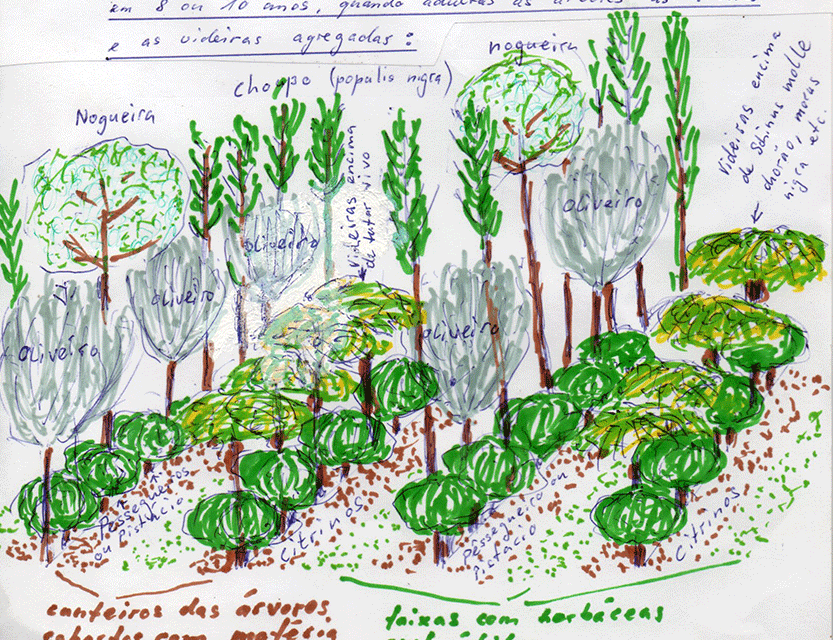 em 8 ou 10 anos, quando adultas as árvores
e as videiras agregadas:
nogueira
choupo (populis nigra)
Nogueira
videiras encima
de Schinus molle
chorão, morus
nigra etc.
Videiras encima
de tutor vivo
oliveiro
oliveiro
oliveiro
oliveiro
oliveiro
Pessegueiros
ou Pistácio
Citrinos
Pessegueiro ou
Pistácio
Citrinos
canteiros das árvores,
faixas com herbáceas